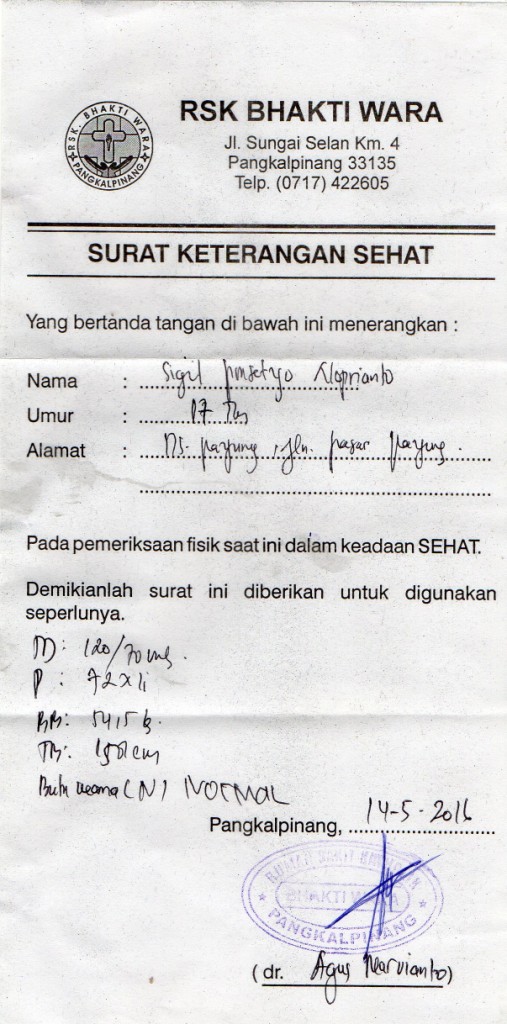 RSK. BHAKTI WARA
PANGKALPINANG
RSK BHAKTI WARA
Jl. Sungai Selan Km. 4
Pangkalpinang 33135
Telp. (0717) 422605
SURAT KETERANGAN SEHAT
Yang bertanda tangan di bawah ini menerangkan :
Nama : Sigit
Umur : 17 Th
Alamat : Ds. payung, jln. pasar payung.
Pada pemeriksaan fisik saat ini dalam keadaan SEHAT.
Demikianlah surat ini diberikan untuk digunakan
seperlunya.
TD: 120/70
P : 72 x/i
BB: 54,5 k
TB:
Buta warna (N) NORMAL
Pangkalpinang, 14-5-2016
RUMAH SAKIT
BHAKTI WARA
PANGKALPINANG
(dr. Agus)